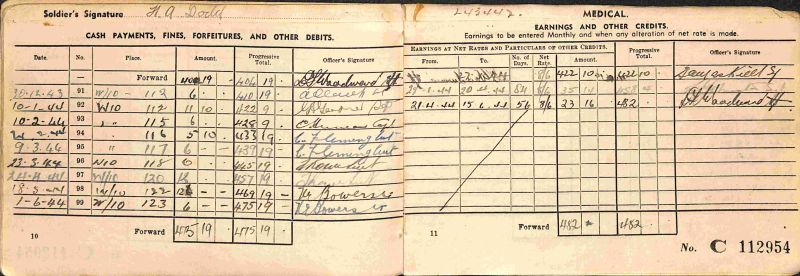 Soldier's Signature H. A. Dodd
CASH PAYMENTS, FINES, FORFEITURES, AND OTHER DEBITS.
Date. No. Place. Amount. Progressive Total. Officer's Signature
— Forward 406 19 406 19
30-12-43 91 W/10 - 112 6 410 19
10-1-44 92 W10 112 11 10 422 9
10-2-44 93 " 115 6 428 9
94 " 116 5 10 433 19
9.3.44 95 " 117 6 - 439 19
23-3-44 96 W10 118 6 445 19
97 W/10 120 12 457 19
18-5-44 98 W/10 122 12 - 469 19 - Bowers
1-6-44 99 W/10 123 6 - 475 19 - Bowers
10 Forward 475 19 475 19
C 112954
L43442.
MEDICAL.
EARNINGS AND OTHER CREDITS.
Earnings to be entered Monthly and when any alteration of net rate is made.
EARNINGS AT NET RATES AND PARTICULARS OF OTHER CREDITS.
From. To. No. of Days. Net Rate. Amount. Progressive Total. Officer's Signature
8/6 422 10 422 10
20 4 44 84 8/6 35 14 458 4
21-4-44 15 6 44 56 8/6 23 16 482
11 Forward 482 482
No. C 112954